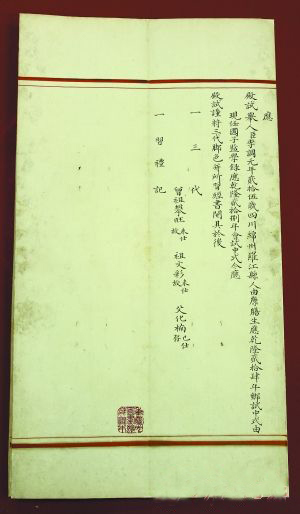 應
殿試舉人臣李調元年貳拾伍歲四川綿州羅江縣人由廩膳生應乾隆貳拾肆年鄉試中式由
現任國子監學錄應乾隆貳拾捌年會試中式今應
殿試謹將三代脚色并所習經書開具於後
一三代
曾祖攀旺未仕故 祖文彩未仕故 父化楠已仕存
一習禮記